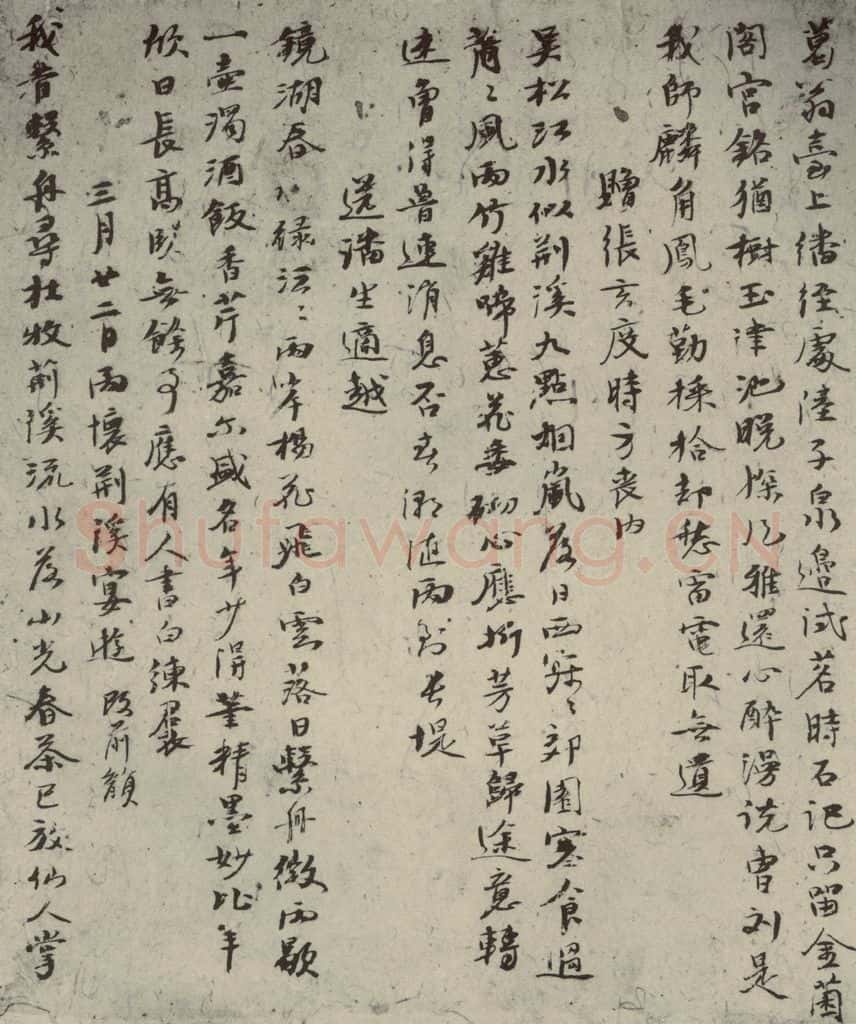 葛翁臺上繙经處陸子泉邊試茗時石记只留金菌
閣宫銘猶樹玉津池晚探風雅還心醉漫说曹刘是
我師麟角鳳毛勤採拾却愁雷電取無遺
贈張玄度時方丧内
吴松江水似荆溪九點烟嵐落日西寂〻郊園寒食過
蕭〻風雨竹雞啼蕙花委砌心應折芳草歸途意轉
迷曾得普連消息否春潮随雨到長堤
送潘生適越
鏡湖春水绿沄〻兩岸楊花飛白雲落日繫舟微雨歇
一壶濁酒飯香芹嘉尔盛名年少得筆精墨妙比年
欣日長高卧無餘事應有人書白練裙
三月廿二日雨懷荆溪宴遊 改前韻
我昔繫舟尋杜牧荆溪流水落山光春茶已放仙人掌
Shufawang.CN